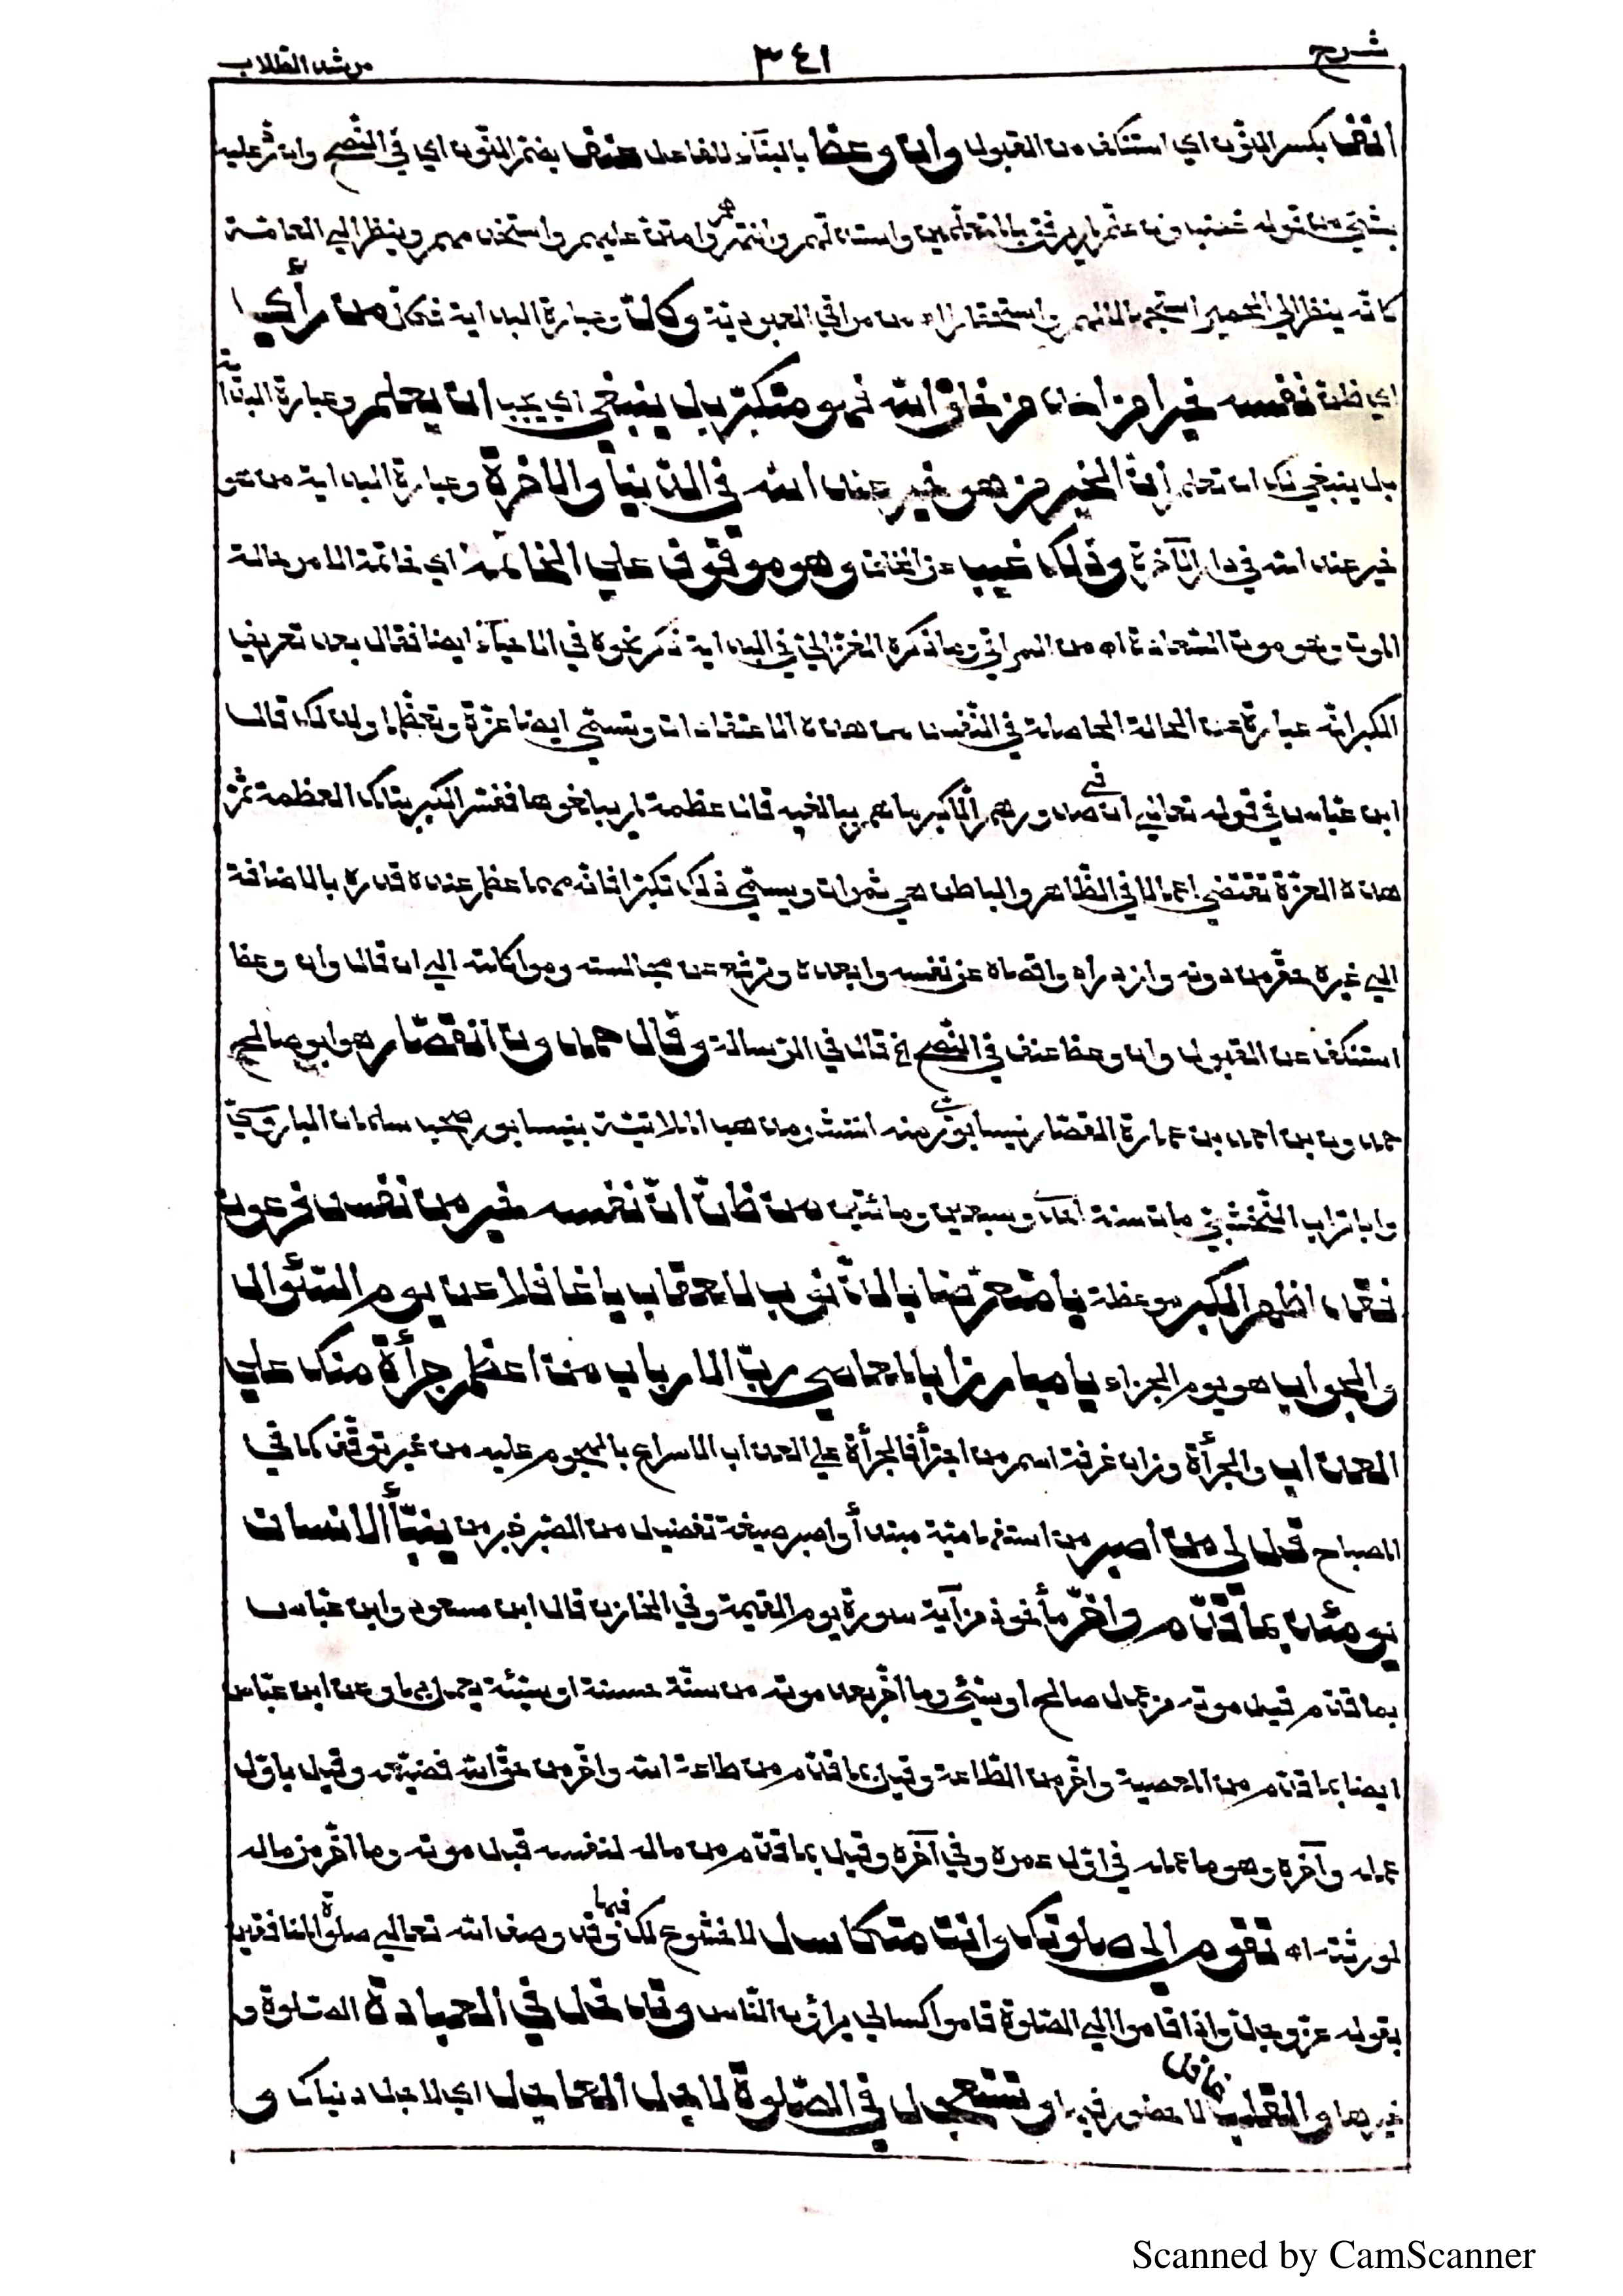 شرح ٣٤١ مرشد الطلاب
أنف بكسر النّون اي استنكف من القبول وان وعظ بالبنآء للفاعل عنف بضمّ النّون اي في النّصح وان رُدّ عليه
بشيء من قوله غضب وان علّم لم يرفق بالمتعلّمين واستذلّهم وانتهرهم وامتنّ عليهم واستخدمهم وينظر الي العامّة
كانّه ينظر الي الحمير استجهالا لهم واستحقارا اه من مراقي العبوديّة وكلّ وعبارة البداية فكلّ من رأي
اي ظنّ نفسه خيرا من احد من خلق الله فهو متكبّر بل ينبغي اي يجب ان يعلم وعبارة البداية
بل ينبغي لك ان تعلم أنّ الخير من هو خير عند الله في الدّنيا والاخرة وعبارة البداية من هو
خير عند الله في دار الآخرة وذلك غيب عن الخلق وهو موقوف علي الخاتمة اي خاتمة الامر حالة
الموت وهو موت السّعادة اه من المراقي وما ذكره الغزّاليّ في البداية ذكر نحوه في الاحيآء ايضا فقال بعد تعريف
الكبر انّه عبارة عن الحالة الحاصلة في النّفس من هذه الاعتقادات وتسمّي ايضا عزّة وتعظّما ولذلك قال
ابن عبّاس في قوله تعالي ان في صدورهم الّا كبر ما هم ببالغيه قال عظمة لم يبلغوها ففسّر الكبر بتلك العظمة ثمّ
هذه العزّة تقتضي اعمالا في الظّاهر والباطن هي ثمرات ويسمّي ذلك تكبّرا فانّه مهما عظم عنده قدره بالاضافة
الي غيره حقّر من دونه وازدراه واقصاه عن نفسه وابعده وترفّع عن مجالسته ومواكلته الي ان قال وان وعظ
استنكف عن القبول وان وعظ عنف في النّصح ثم قال في الرّسالة وقال حمدون القصّار هو ابو صالح
حمدون بن احمد بن عمارة القصّار نيسابوريّ منه انتشر مذهب الملامتيّة بنيسابور صحب سلمان الباروسيّ
وابا تراب النّخشبيّ مات سنة احدى وسبعين ومائتين من ظنّ انّ نفسه خير من نفس فرعون
فقد اظهر الكبر موعظة يا متعرّضا بالذّنوب للعقاب يا غافلا عن يوم السّئوال
والجواب هو يوم الجزاء يا مبارزا بالمعاصي ربّ الارباب من اعظم جرأة منك علي
العذاب والجرأة وزان غرفة اسم من اجترأ فالجرأة علي العذاب الاسراع بالهجوم عليه من غير توقّف كما في
المصباح قل لي من اصبر من استفهاميّة مبتدأ واصبر صيغة تفضيل من الصّبر خبر من ينبّأ الانسان
يومئذ بما قدّم واخّر مأخوذ من آية سورة يوم القيمة وفي الخازن قال ابن مسعود وابن عبّاس
بما قدّم قبل موته من عمل صالح او سيّئ وما اخّر بعد موته من سنّة حسنة او سيّئة يعمل بها وعن ابن عبّاس
ايضا بما قدّم من المعصية واخّر من الطّاعة وقيل بما قدّم من طاعة الله واخّر من حقّ الله فضيّعه وقيل باوّل
عمله وآخره وهو ما عمله في اوّل عمره وفي آخره وقيل بما قدّم من ماله لنفسه قبل موته وما اخّر من ماله
لورثته اه تقوم الي صلوتك وانت متكاسل لا خشوع لك فيها وقد وصف الله تعالي صلوة المنافقين
بقوله عزّ وجلّ واذا قاموا الي الصّلوة قاموا كسالي يراؤن النّاس وتدخل في العبادة الصّلوة و
غيرها والقلب غافل لا حضور فيها وتستعجل في الصّلوة لاجل العاجل اي لاجل دنياك و
Scanned by CamScanner